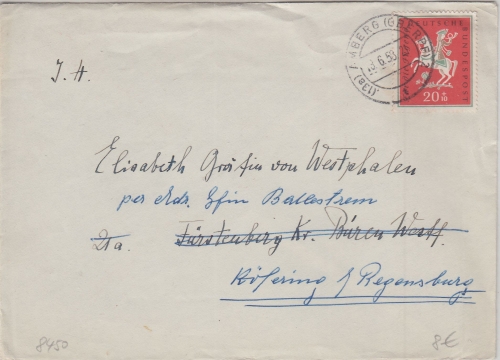 (13a) AMBERG (OBERPF)
.6.58
DEUTSCHE BUNDESPOST
20+10
I. H.
Elisabeth Gräfin von Westphalen
per Adr. Gfin Ballestrem
Fürstenberg Kr. Büren Westf.
Köfering b/Regensburg
8450
8€